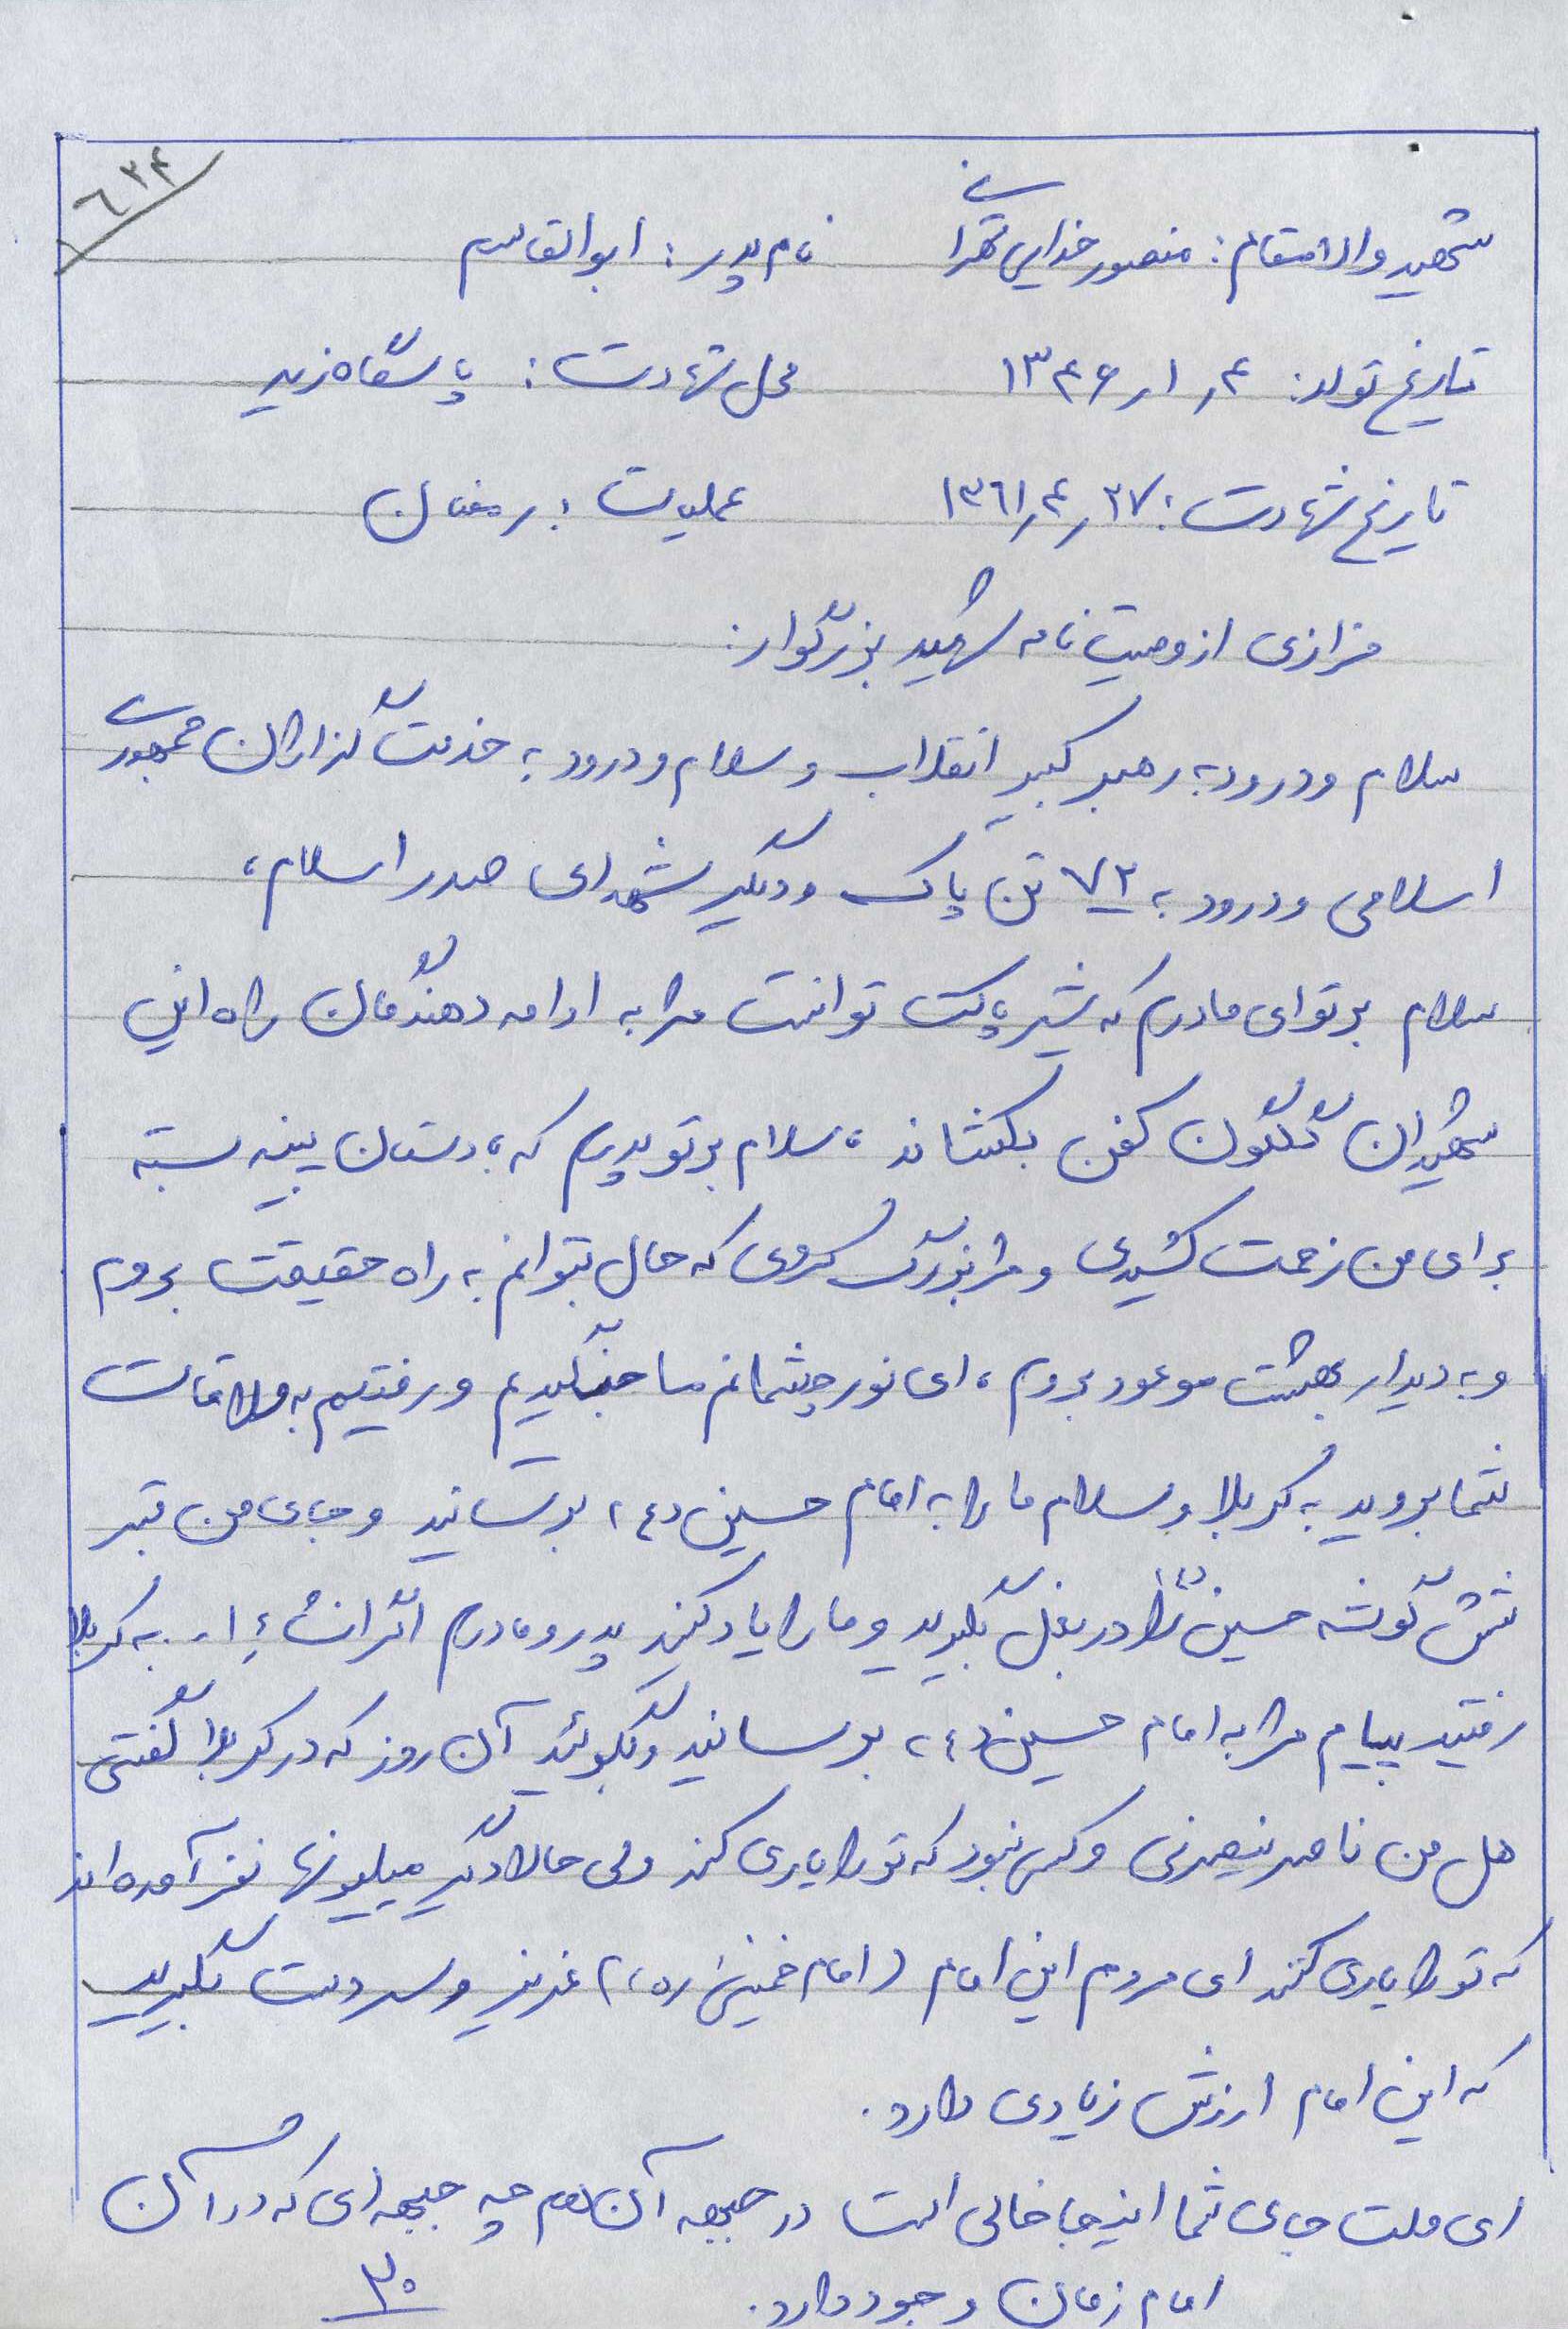 ۶۳۴
شهید والامقام: منصور خدایی تهرانی نام پدر: ابوالقاسم
تاریخ تولد: ۱۳۴۶/۱/۴ محل شهادت: پاسگاه زید
تاریخ شهادت: ۱۳۶۱/۴/۲۷ عملیات: رمضان
فرازی از وصیت نامه شهید بزرگوار:
سلام و درود به رهبر کبیر انقلاب و سلام و درود به خدمت گذاران جمهوری
اسلامی و درود به ۷۲ تن پاک و دیگر شهدای صدر اسلام،
سلام بر تو ای مادرم که شیر پاکت توانست مرا به ادامه دهندگان راه این
شهیدان گلگون کفن بکشاند، سلام بر تو پدرم که با دستان پینه بسته
برای من زحمت کشیدی و مرا بزرگ کردی که حال بتوانم به راه حقیقت بروم
و به دیدار بهشت موعود بروم، ای نور چشمانم ما جنگیدیم و رفتیم به ملاقات
شما بروید به کربلا و سلام ما را به امام حسین (ع) برسانید و جای من قبر
شش گوشه حسین (ع) را در بغل بگیرید و ما را یاد کنید پدر و مادرم اگر انشاءا... به کربلا
رفتید پیام مرا به امام حسین (ع) برسانید و بگوئید آن روز که در کربلا گفتی
هل من ناصر ینصرنی و کسی نبود که تو را یاری کند ولی حالا دیگر میلیونها نفر آمده اند
که تو را یاری کنند ای مردم این امام (امام خمینی (ره)) عزیز و سر دست بگیرید
که این امام ارزش زیادی دارد.
ای ملت جای شما اینجا خالی است در جبهه آن هم چه جبهه ای که در آن
امام زمان وجود دارد.
۳۰